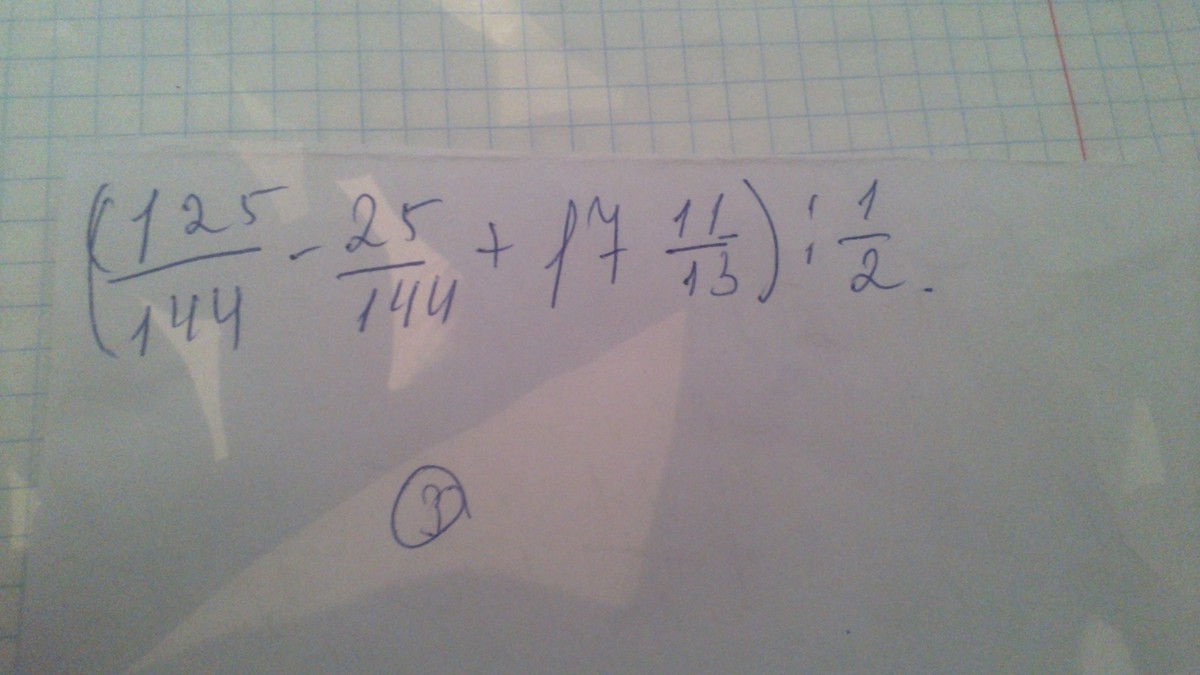 (125/144 - 25/144 + 17 11/13) : 1/2.
3